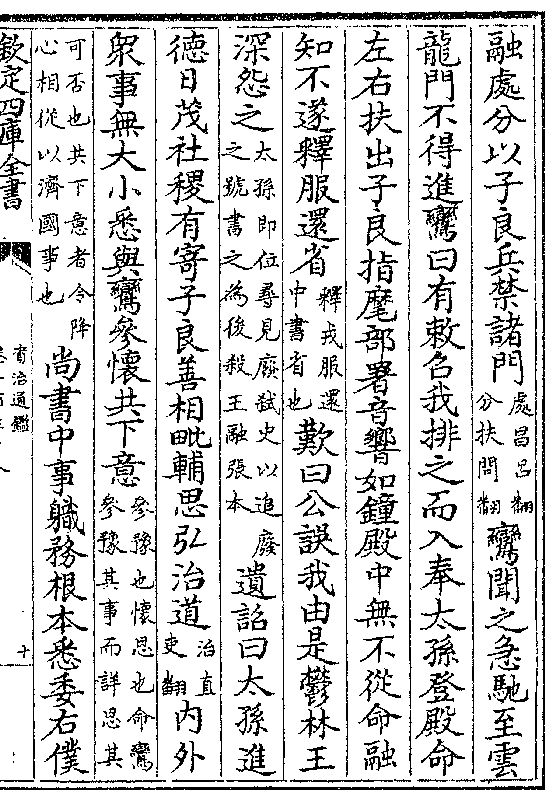 融處分以子良兵禁諸門處昌呂翻分扶問翻鸞聞之急馳至雲
龍門不得進鸞曰有敕召我排之而入奉太孫登殿命
左右扶出子良指麾部署音響如鐘殿中無不從命融
知不遂釋服還省釋戎服還中書省也歎曰公誤我由是鬱林王
深怨之太孫即位尋見廢弑史以追廢之號書之為後殺王融張本遺詔曰太孫進
德日茂社稷有寄子良善相毗輔思弘治道治直吏翻內外
衆事無大小悉與鸞參懷共下意參豫也懷思也命鸞參豫其事而詳思其
可否也共下意者令降心相從以濟國事也尚書中事職務根本悉委右僕
欽定四庫全書
資治通鑑
十